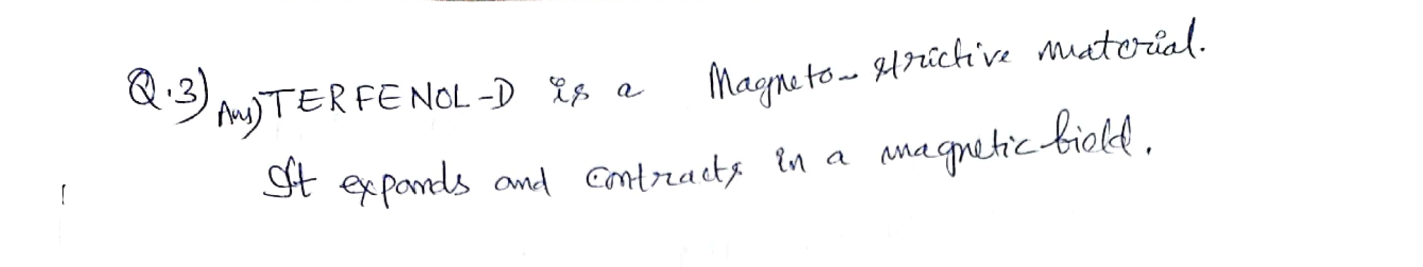 Q.3) Ans) TERFENOL-D is a Magneto-strictive material.
It expands and contracts in a magnetic field.